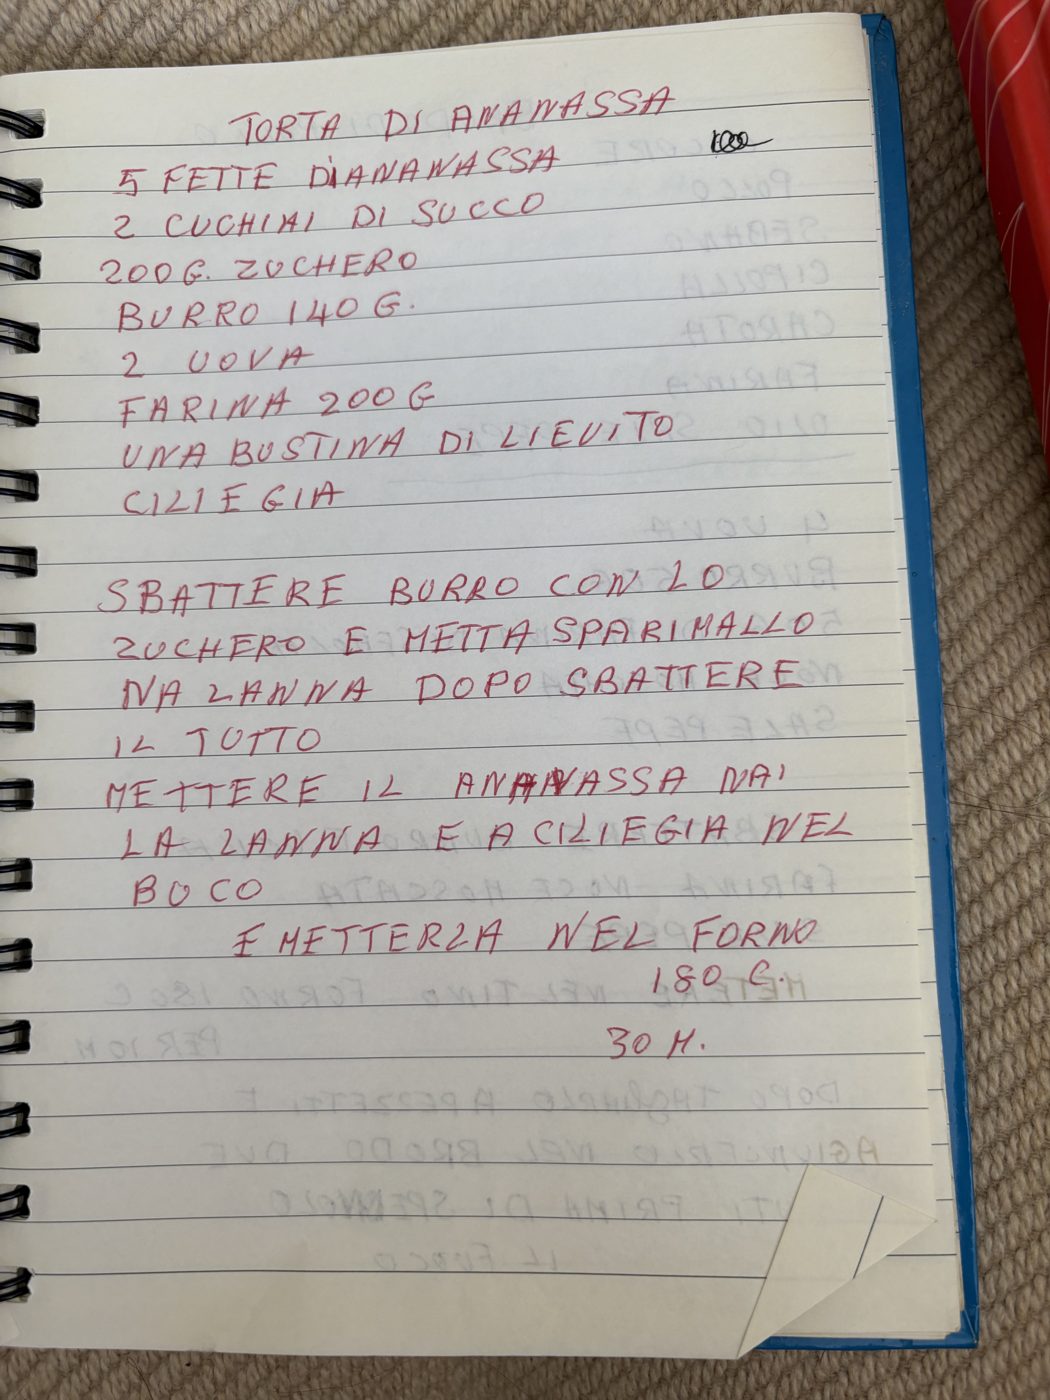 TORTA DI ANANASSA
5 FETTE DIANANASSA
2 CUCHIAI DI SUCCO
200G. ZUCHERO
BURRO 140 G.
2 UOVA
FARINA 200 G
UNA BUSTINA DI LIEVITO
CILIEGIA
SBATTERE BURRO CON LO
ZUCHERO E METTA SPARIMALLO
NA LANNA DOPO SBATTERE
IL TUTTO
METTERE IL ANANASSA NAI
LA LANNA E A CILIEGIA NEL
BUCO
E METTERLA NEL FORNO
180 C.
30 M.